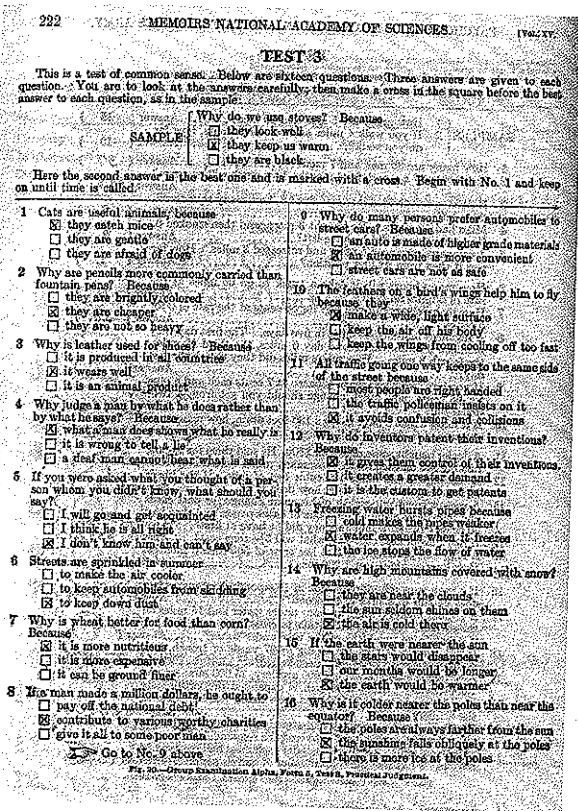 222 MEMOIRS NATIONAL ACADEMY OF SCIENCES [VOL. XV,
TEST 3
This is a test of common sense. Below are sixteen questions. Three answers are given to each
question. You are to look at the answers carefully; then make a cross in the square before the best
answer to each question, as in the sample:
Why do we use stoves? Because
☐ they look well
SAMPLE ☒ they keep us warm
☐ they are black
Here the second answer is the best one and is marked with a cross. Begin with No. 1 and keep
on until time is called.
1 Cats are useful animals, because
☒ they catch mice
☐ they are gentle
☐ they are afraid of dogs
2 Why are pencils more commonly carried than
fountain pens? Because
☐ they are brightly colored
☒ they are cheaper
☐ they are not so heavy
3 Why is leather used for shoes? Because
☐ it is produced in all countries
☒ it wears well
☐ it is an animal product
4 Why judge a man by what he does rather than
by what he says? Because
☒ what a man does shows what he really is
☐ it is wrong to tell a lie
☐ a deaf man cannot hear what is said
5 If you were asked what you thought of a per-
son whom you didn't know, what should you
say?
☐ I will go and get acquainted
☐ I think he is all right
☒ I don't know him and can't say
6 Streets are sprinkled in summer
☐ to make the air cooler
☐ to keep automobiles from skidding
☒ to keep down dust
7 Why is wheat better for food than corn?
Because
☒ it is more nutritious
☐ it is more expensive
☐ it can be ground finer
8 If a man made a million dollars, he ought to
☐ pay off the national debt
☒ contribute to various worthy charities
☐ give it all to some poor man
☞ Go to No. 9 above
9 Why do many persons prefer automobiles to
street cars? Because
☐ an auto is made of higher grade materials
☒ an automobile is more convenient
☐ street cars are not as safe
10 The feathers on a bird's wings help him to fly
because they
☒ make a wide, light surface
☐ keep the air off his body
☐ keep the wings from cooling off too fast
11 All traffic going one way keeps to the same side
of the street because
☐ most people are right handed
☐ the traffic policeman insists on it
☒ it avoids confusion and collisions
12 Why do inventors patent their inventions?
Because
☒ it gives them control of their inventions.
☐ it creates a greater demand
☐ it is the custom to get patents
13 Freezing water bursts pipes because
☐ cold makes the pipes weaker
☒ water expands when it freezes
☐ the ice stops the flow of water
14 Why are high mountains covered with snow?
Because
☐ they are near the clouds
☐ the sun seldom shines on them
☒ the air is cold there
15 If the earth were nearer the sun
☐ the stars would disappear
☐ our months would be longer
☒ the earth would be warmer
16 Why is it colder nearer the poles than near the
equator? Because
☐ the poles are always farther from the sun
☒ the sunshine falls obliquely at the poles
☐ there is more ice at the poles
Fig. 20.—Group Examination Alpha, Form 5, Test 3, Practical Judgment.